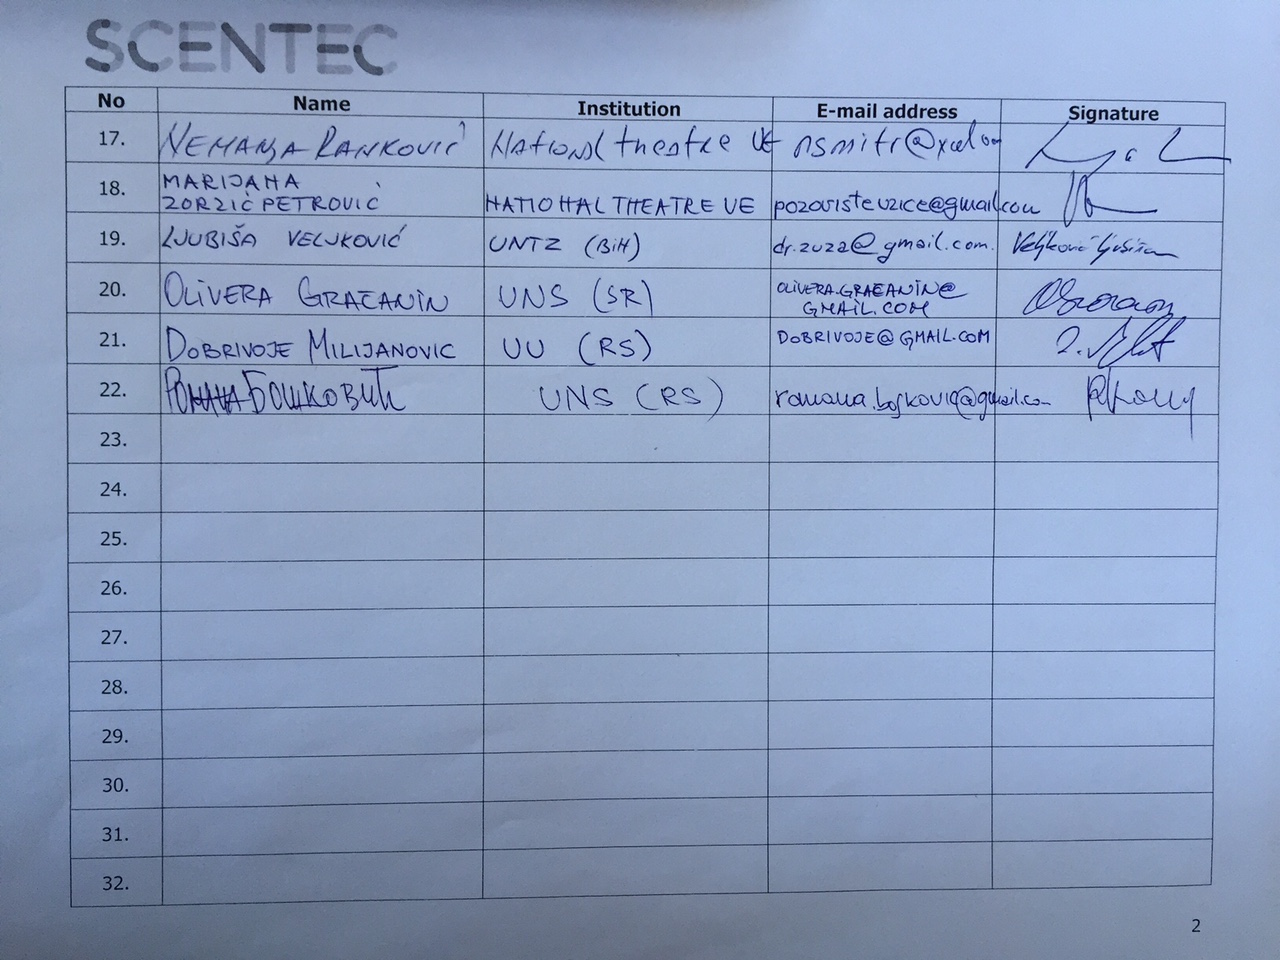 SCENTEC
No Name Institution E-mail address Signature
17. NEMANJA RANKOVIĆ National theatre UE
18. MARIJANA
ZORZIĆ PETROVIĆ NATIONAL THEATRE UE pozovisteuzice@gmail.com
19. LJUBIŠA VELJKOVIĆ UNTZ (BiH) dr.zuza@gmail.com. Veljković Ljubiša
20. OLIVERA GRAČANIN UNS (SR) OLIVERA.GRACANIN@
GMAIL.COM
21. DOBRIVOJE MILIJANOVIC UU (RS) DOBRIVOJE@GMAIL.COM
22. РОМАНА БОШКОВИЋ UNS (RS) romana.boskovic@gmail.com
23.
24.
25.
26.
27.
28.
29.
30.
31.
32.
2